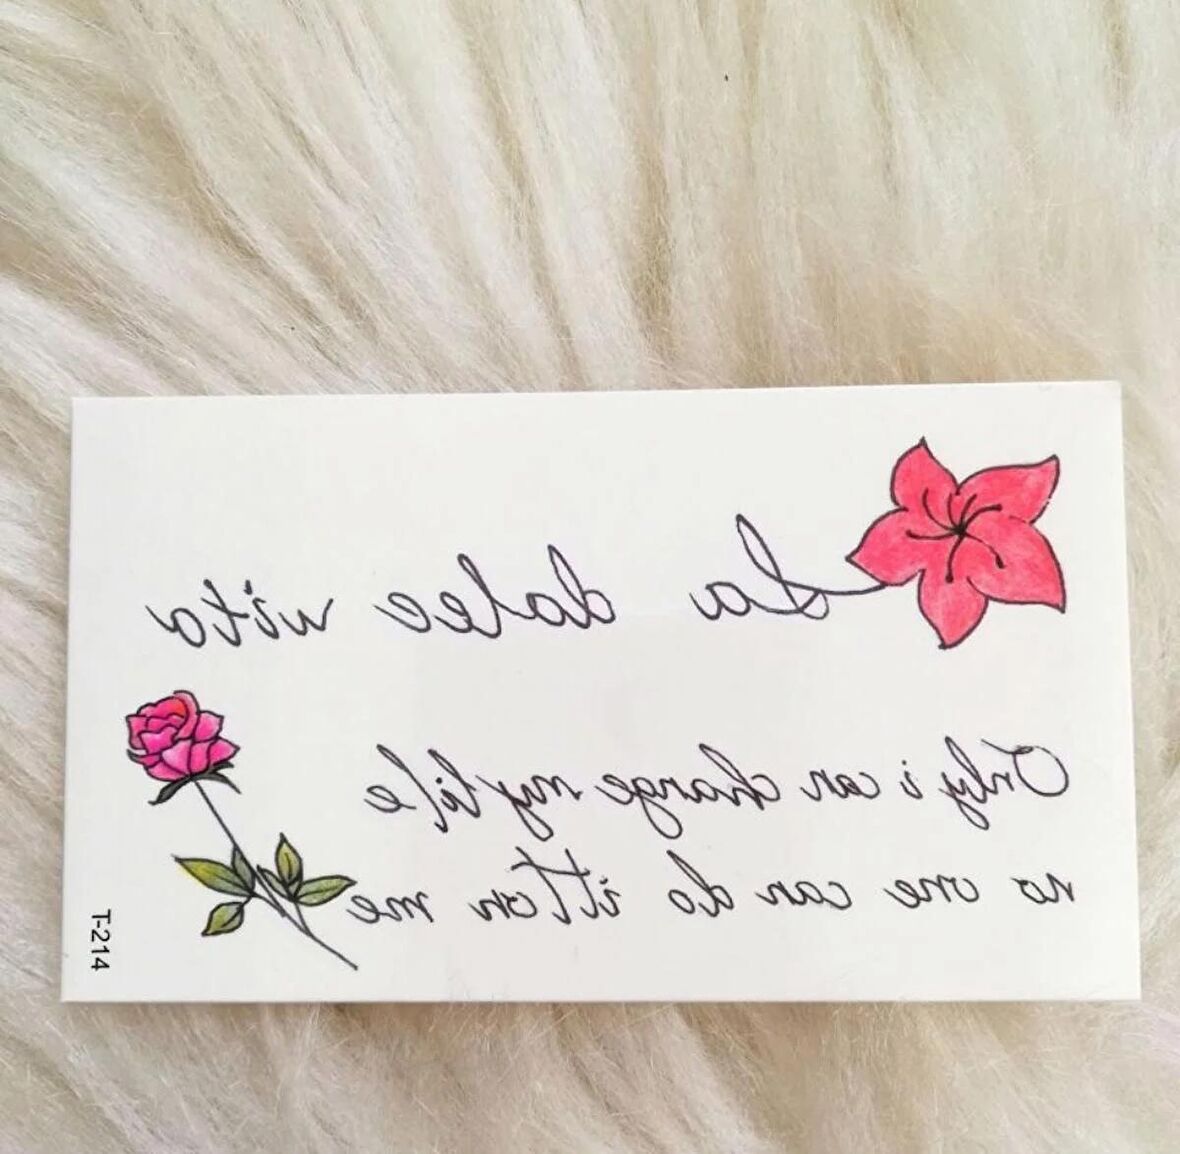 La dalee vita
Only i can change my life
no one can do itton me
T-214